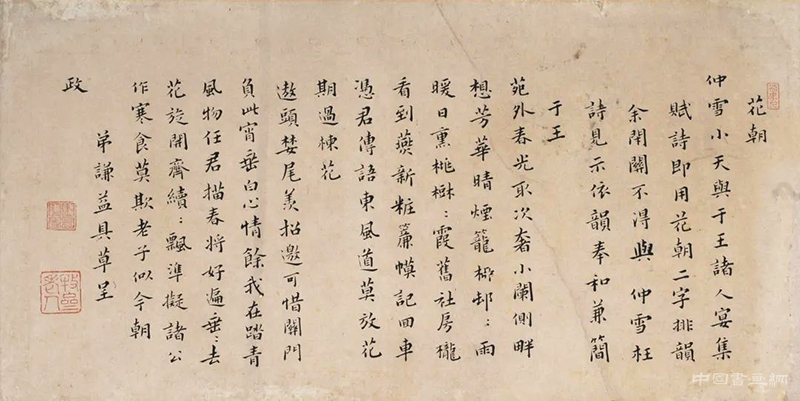 花朝
仲雪小天與于王諸人宴集
賦詩即用花朝二字排韻
余閉關不得與仲雪枉
詩見示依韻奉和兼簡
于王
苑外春光取次奢小闌側畔
想芳華晴煙籠柳邨：雨
暖日熏桃樹：霞舊社房櫳
看到燕新粧簾幙記回車
憑君傳語東風道莫放花
期過楝花
遨頭婪尾羨招邀可惜關門
負此宵垂白心情餘我在踏青
風物任君描春將好遍垂：去
花旋開齊續：飄準擬諸公
作寒食莫欺老子似今朝
弟謙益具草呈
政
中国書画網